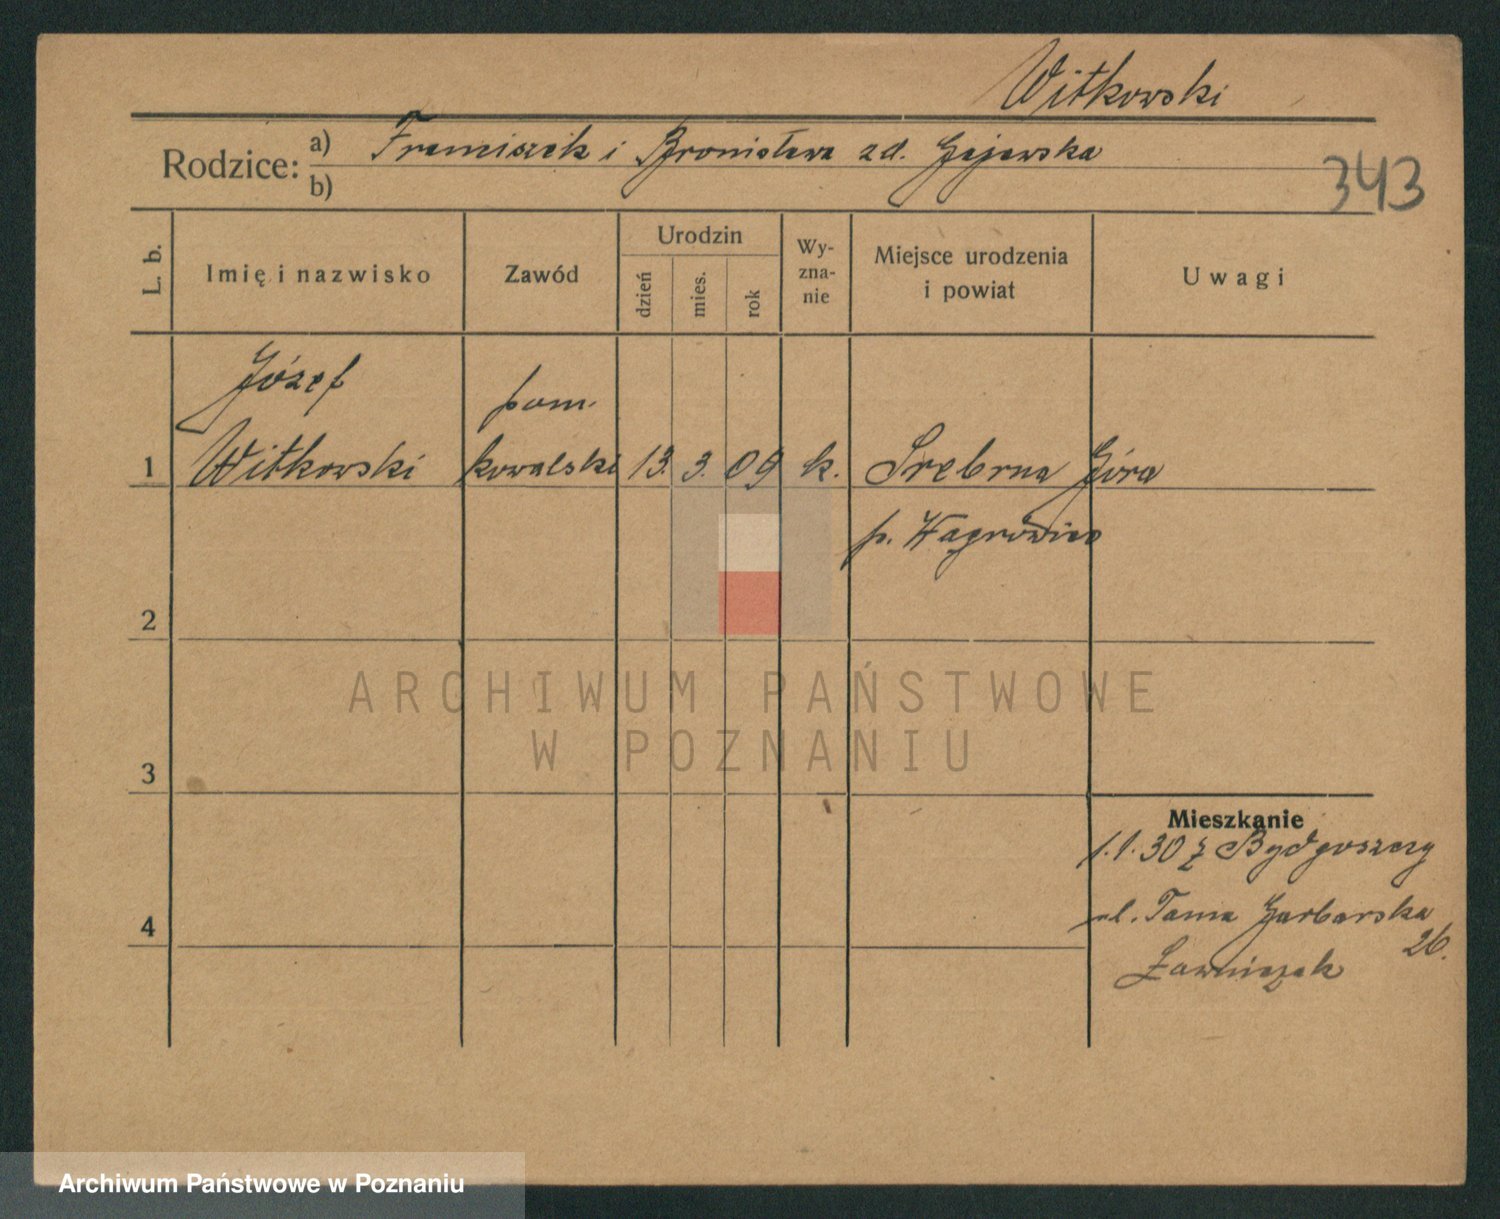 Witkowski
Rodzice: a) Franciszek i Bronisława zd. Gajewska
b)
343
L. b.
Imię i nazwisko
Zawód
Urodzin
dzień
mies.
rok
Wy-
zna-
nie
Miejsce urodzenia
i powiat
Uwagi
Józef
pom.
1 Witkowski kowalski 13. 3. 09 k. Srebrna Góra
p. Wągrowiec
2
ARCHIWUM PAŃSTWOWE
W POZNANIU
3
Mieszkanie
1.1.30 z Bydgoszczy
4 ul. Tama Garbarska
26.
Ławniczak
Archiwum Państwowe w Poznaniu